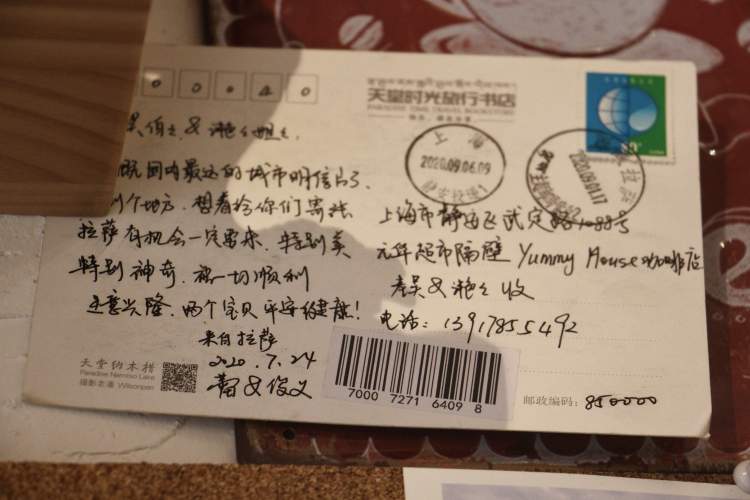 0 0 0 4 0
天堂时光旅行书店
PARADISE TIME TRAVEL BOOKSTORE
吴伯之 &
国内最远的城市明信片了
个地方。想着给你们寄张
拉萨有机会一定要来,特别美
特别神奇。祝一切顺利
生意兴隆,两个宝贝平安健康!
来自拉萨
2020.7.24
上海
2020.09.06.09
静安投递1
2020.09.01.17
80
上海市静安区武定路1088号
元华超市隔壁 Yummy House咖啡店
老吴& 收
电话:13917855492
天堂纳木错
Paradise Namtso Lake
摄影老潘 Wilsonpan
7000 7271
6409 8
邮政编码:850000